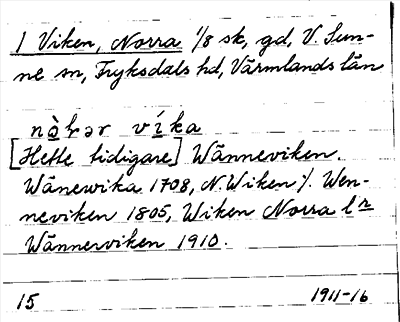 1 Viken, Norra 1/8 sk, gd, V. Sun-
ne sn, Fryksdals hd, Värmlands län
nòkər víka
[Hette tidigare] Wänneviken.
Wänewika 1708, N. Wiken %. Wen-
neviken 1805, Wiken Norra l. n
Wänneviken 1910.
15 1911-16